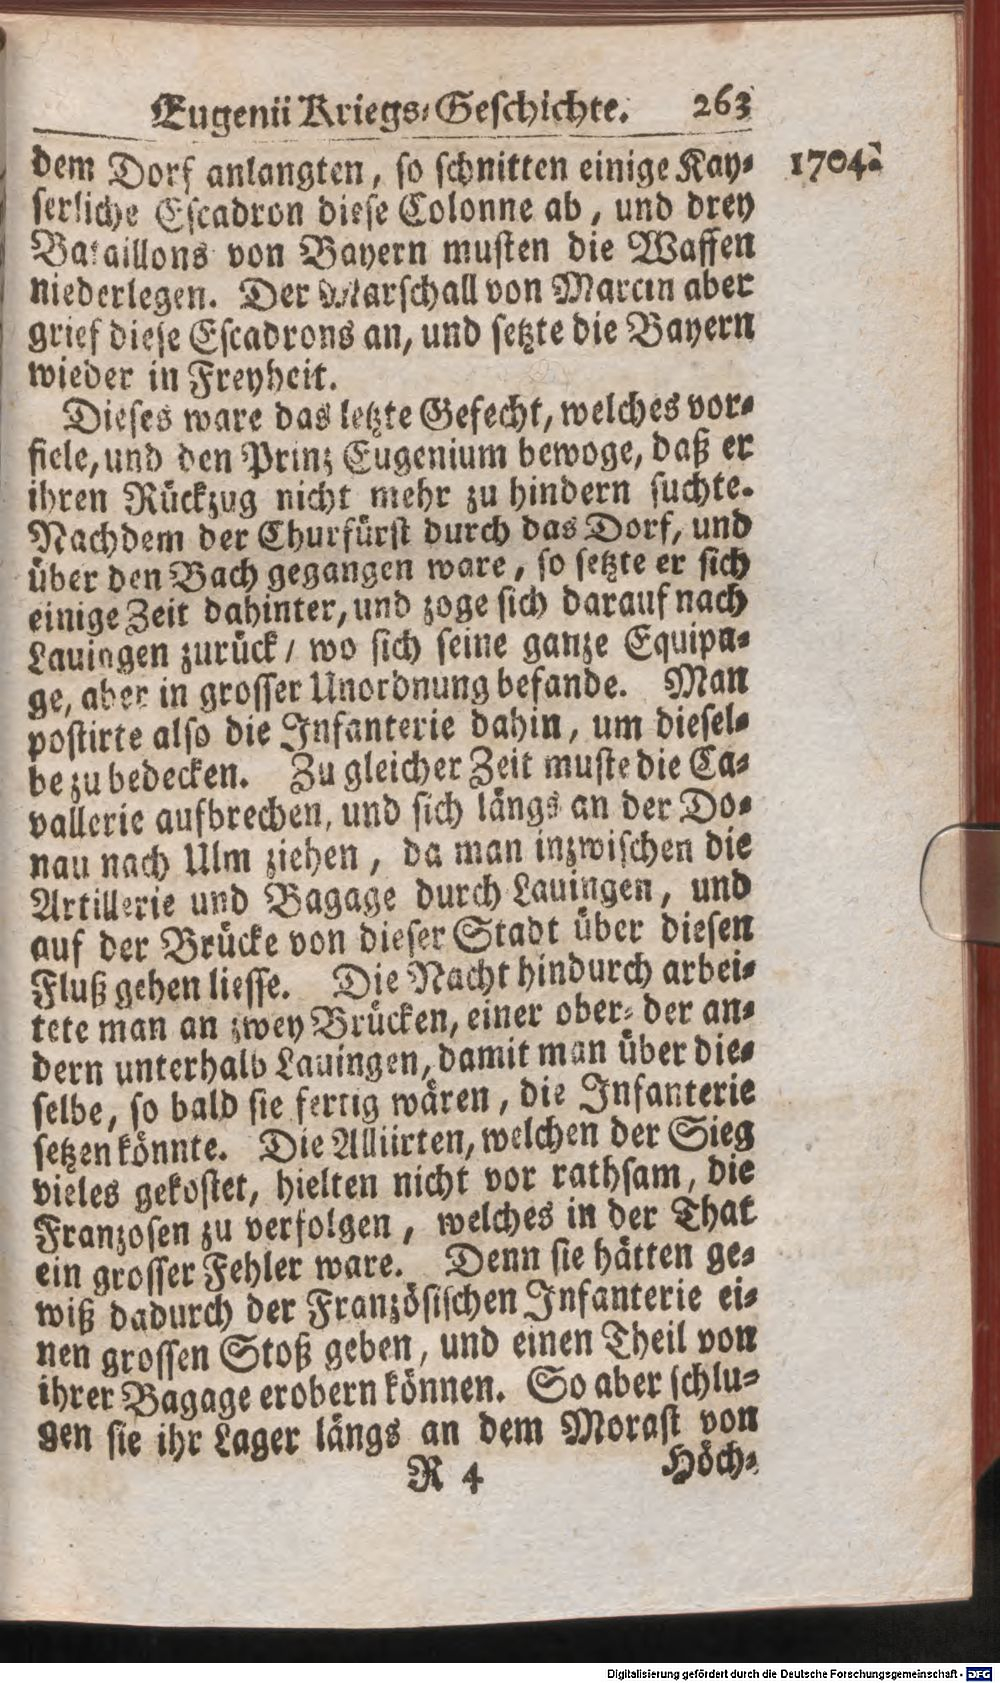 Eugenii Kriegs-Geschichte. 263
dem Dorf anlangten, so schnitten einige Kay- 1704.
serliche Escadron diese Colonne ab, und drey
Bataillons von Bayern musten die Waffen
niederlegen. Der Marschall von Marcin aber
grief diese Escadrons an, und setzte die Bayern
wieder in Freyheit.
Dieses ware das letzte Gefecht, welches vor-
fiele, und den Prinz Eugenium bewoge, daß er
ihren Rückzug nicht mehr zu hindern suchte.
Nachdem der Churfürst durch das Dorf, und
über den Bach gegangen ware, so setzte er sich
einige Zeit dahinter, und zoge sich darauf nach
Lauingen zurück / wo sich seine ganze Equipa-
ge, aber in grosser Unordnung befande. Man
postirte also die Infanterie dahin, um diesel-
be zu bedecken. Zu gleicher Zeit muste die Ca-
vallerie aufbrechen, und sich längs an der Do-
nau nach Ulm ziehen, da man inzwischen die
Artillerie und Bagage durch Lauingen, und
auf der Brücke von dieser Stadt über diesen
Fluß gehen liesse. Die Nacht hindurch arbei-
tete man an zwey Brücken, einer ober- der an-
dern unterhalb Lauingen, damit man über die-
selbe, so bald sie fertig wären, die Infanterie
setzen könnte. Die Alliirten, welchen der Sieg
vieles gekostet, hielten nicht vor rathsam, die
Franzosen zu verfolgen, welches in der That
ein grosser Fehler ware. Denn sie hätten ge-
wiß dadurch der Französischen Infanterie ei-
nen grossen Stoß geben, und einen Theil von
ihrer Bagage erobern können. So aber schlu-
gen sie ihr Lager längs an dem Morast von
R 4 Höch-
Digitalisierung gefördert durch die Deutsche Forschungsgemeinschaft - DFG